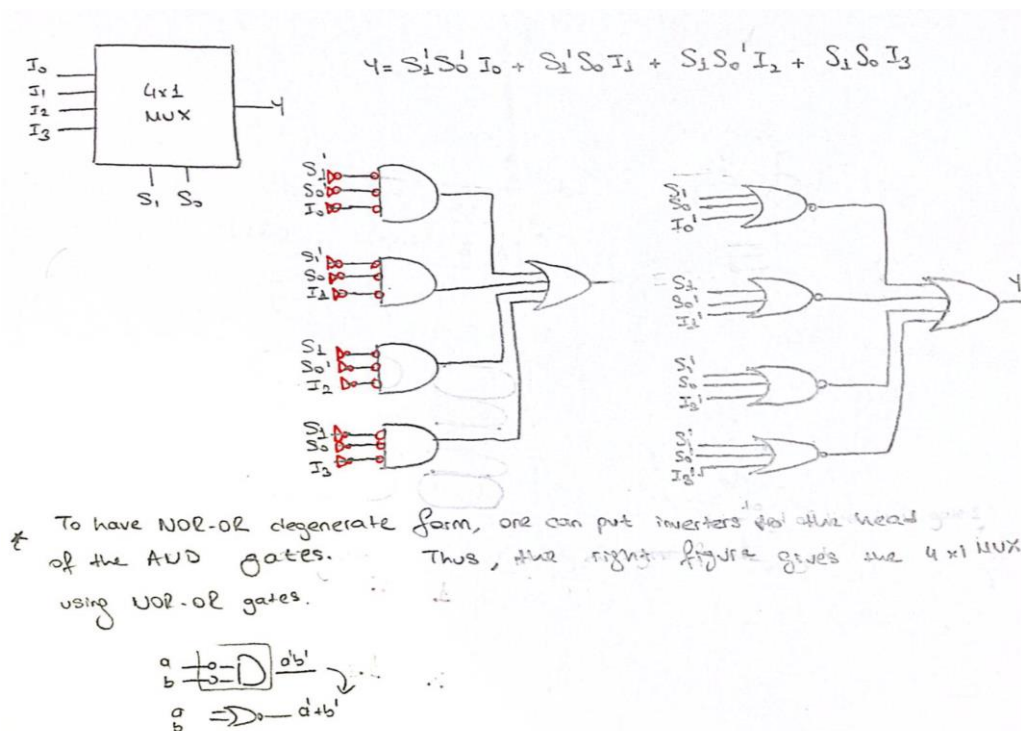 I₀
I₁
I₂
I₃
4x1
MUX
Y
S₁ S₀
Y = S₁'S₀'I₀ + S₁'S₀I₁ + S₁S₀'I₂ + S₁S₀I₃
S₁'
S₀'
I₀
S₁'
S₀
I₁
S₁
S₀'
I₂
S₁
S₀
I₃
S₁
S₀
I₀'
S₁
S₀'
I₁'
S₁'
S₀
S₁'
S₀'
I₃'
Y
* To have NOR-OR degenerate form, one can put inverters to the head
of the AND gates. Thus, the right figure gives the 4x1 MUX
using NOR-OR gates.
a
b
a'b'
a
b
a'+b'